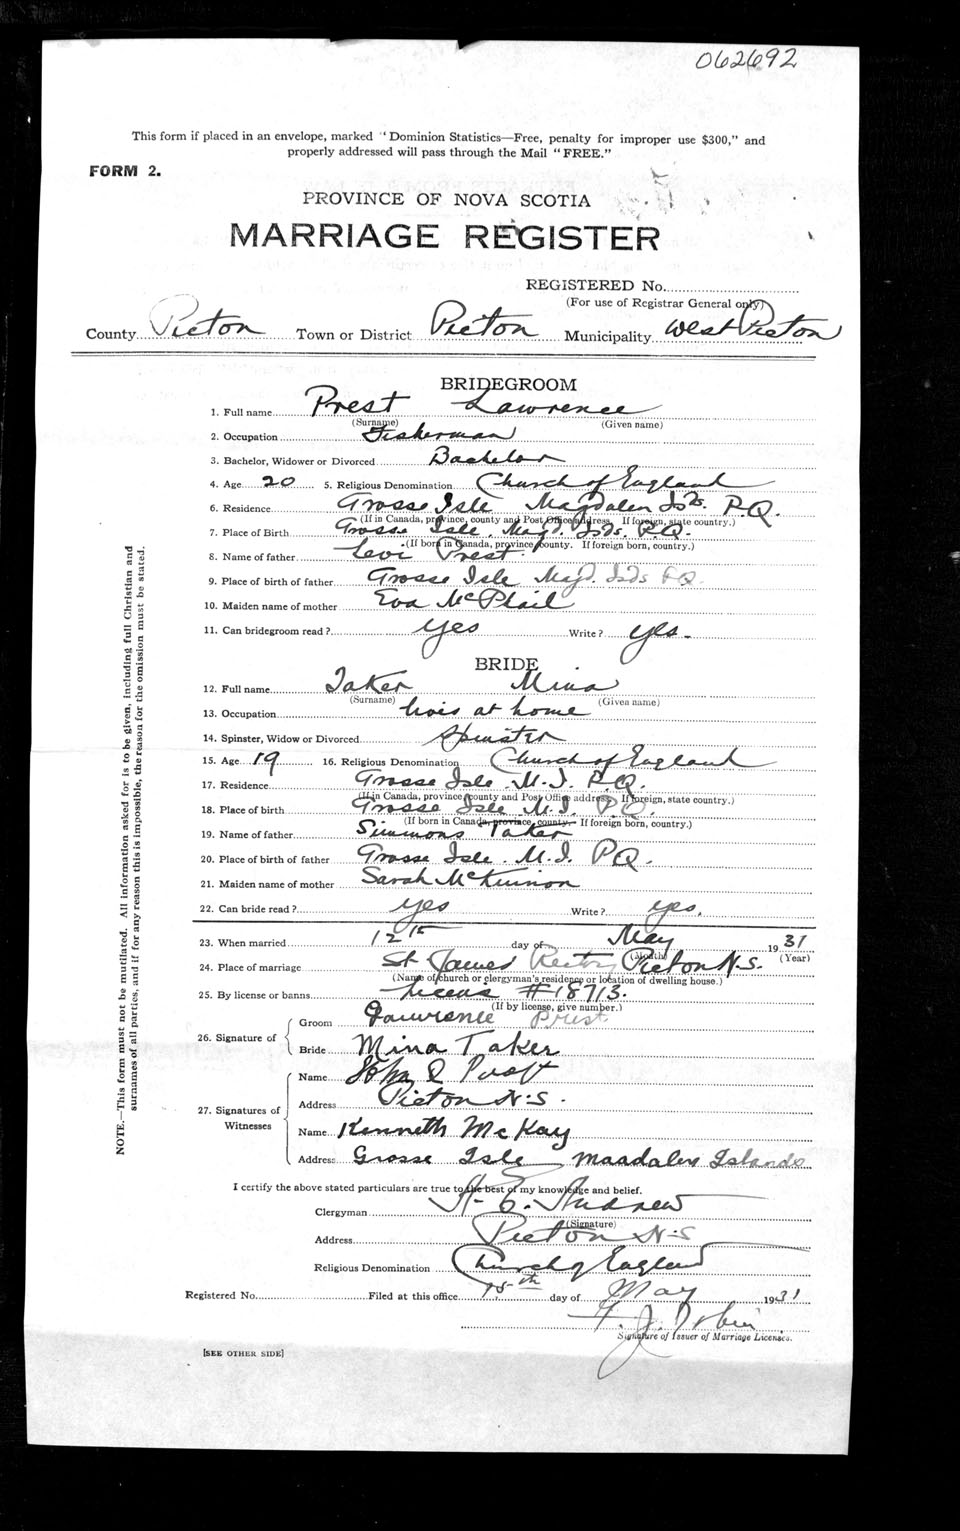 062692
This form if placed in an envelope, marked "Dominion Statistics—Free, penalty for improper use $300," and
properly addressed will pass through the Mail "FREE."
FORM 2.
PROVINCE OF NOVA SCOTIA
MARRIAGE REGISTER
REGISTERED No.
(For use of Registrar General only)
County Pictou Town or District Pictou Municipality West Pictou
BRIDEGROOM
1. Full name Prest Lawrence
(Surname) (Given name)
2. Occupation Fisherman
3. Bachelor, Widower or Divorced Bachelor
4. Age 20 5. Religious Denomination Church of England
6. Residence Grosse Isle Magdalen Isds. P.Q.
(If in Canada, province, county and Post Office address. If foreign, state country.)
7. Place of Birth Grosse Isle. Magd. Isds. P.Q.
(If born in Canada, province, county. If foreign born, country.)
8. Name of father Levi Prest
9. Place of birth of father Grosse Isle Magd. Isds P.Q.
10. Maiden name of mother Eva McPhail
11. Can bridegroom read? yes Write? yes.
BRIDE
12. Full name Taker Mina
(Surname) (Given name)
13. Occupation lives at home
14. Spinster, Widow or Divorced Spinster
15. Age 19 16. Religious Denomination Church of England
17. Residence Grosse Isle. M.I. P.Q.
(If in Canada, province, county and Post Office address. If foreign, state country.)
18. Place of birth Grosse Isle M.I. P.Q.
(If born in Canada, province, county. If foreign born, country.)
19. Name of father Simmons Taker
20. Place of birth of father Grosse Isle. M.I. P.Q.
21. Maiden name of mother Sarah McKinnon
22. Can bride read? yes Write? yes.
23. When married 12th day of May 1931
(Month) (Year)
24. Place of marriage St James Rectory Pictou N.S.
(Name of church or clergyman's residence or location of dwelling house.)
25. By license or banns License # 18713.
(If by license, give number.)
26. Signature of Groom Lawrence Prest
Bride Mina Taker
27. Signatures of Witnesses Name John
Address Pictou N.S.
Name Kenneth McKay
Address Grosse Isle Maadalen Islands
I certify the above stated particulars are true to the best of my knowledge and belief.
Clergyman Andrew
(Signature)
Address Pictou N.S
Religious Denomination Church of England
Registered No. Filed at this office 15th day of May 1931
Signature of Issuer of Marriage Licenses.
[SEE OTHER SIDE]
NOTE.—This form must not be mutilated. All information asked for is to be given, including full Christian and
surnames of all parties, and if for any reason this is impossible, the reason for the omission must be stated.